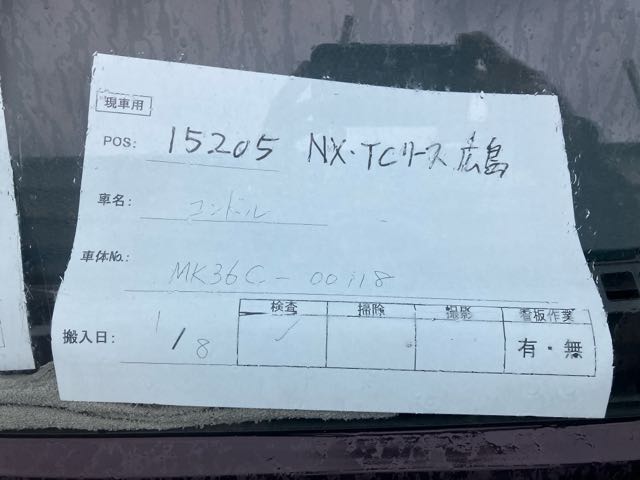 現車用
POS: 15205 NX・TCリース広島
車名: コンドール
車体No.: MK36C-00118
検査 掃除 撮影 看板作業
搬入日: 1/8 ✓ 有・無